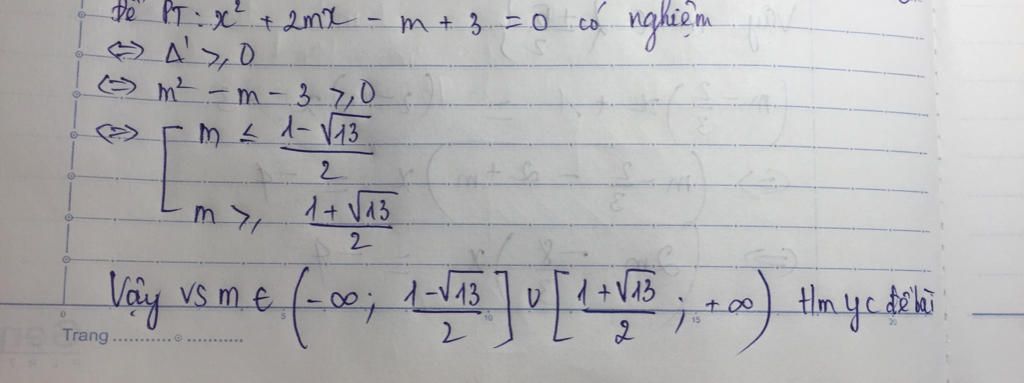 Để PT: x² + 2mx - m + 3 = 0 có nghiệm
⇔ Δ' ≥ 0
⇔ m² - m - 3 ≥ 0
⇔ [ m ≤ (1-√13)/2
m ≥ (1+√13)/2
Vậy vs m ∈ (-∞; (1-√13)/2] ∪ [(1+√13)/2; +∞) thm yc đề bài
0 5 10 15 20
Trang